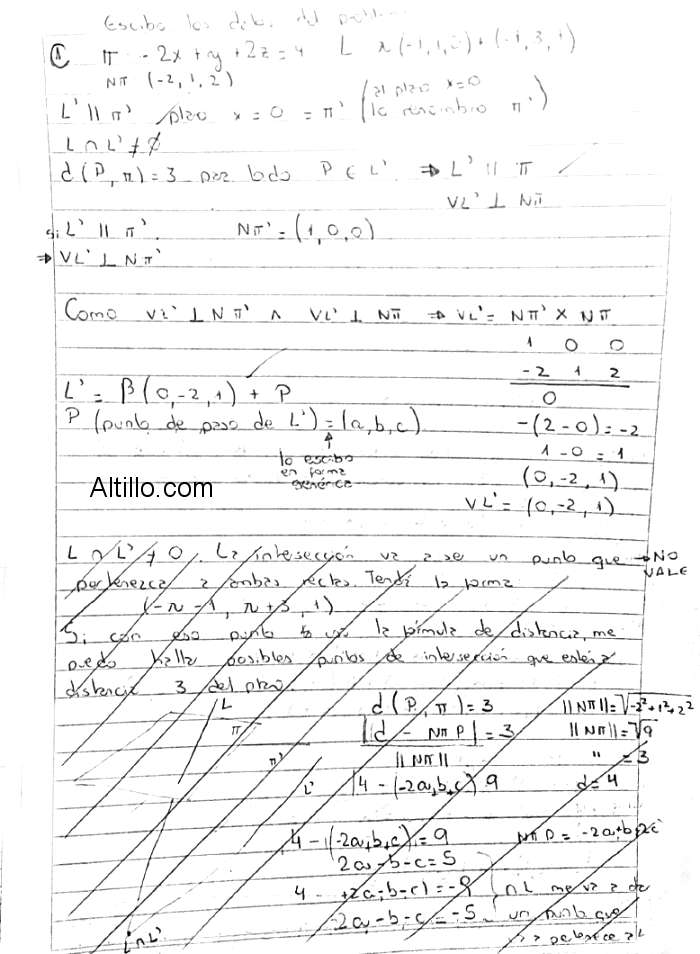 Escribo los datos del
1 π -2x + y + 2z = 4 L λ(-1,1,0) + (-1,3,1)
Nπ (-2,1,2)
L' || π' plano x = 0 = π' (al plano x=0
lo renombro π')
L ∩ L' ≠ ∅
d(P,π) = 3 para todo P ∈ L' ⇒ L' || π
VL' ⊥ Nπ
Si L' || π'. Nπ' = (1,0,0)
⇒ VL' ⊥ Nπ'
Como VL' ⊥ Nπ' ∧ VL' ⊥ Nπ ⇒ VL' = Nπ' × Nπ
1 0 0
-2 1 2
0
L' = β(0,-2,1) + P
P (punto de paso de L') = (a,b,c) -(2-0) = -2
↑ 1-0 = 1
lo escribo
en forma
genérica
(0,-2,1)
VL' = (0,-2,1)
Altillo.com
L ∩ L' ≠ 0. La intersección va a ser un punto que → NO
VALE
pertenezca a ambas rectas. Tendrá la forma
(-λ-1, λ+3, 1)
Si con ese punto la fórmula de distancia, me
puedo hallar posibles puntos de intersección que estén a
distancia 3 del plano.
L
π
π'
L'
L∩L'
d(P,π) = 3 ||Nπ|| = √-2²+1²+2²
|d - Nπ P| = 3 ||Nπ|| = √9
||Nπ|| " = 3
|4 - (-2a,b,c) 9 d = 4
4 - (-2a,b,c) = 9 Nπ P = -2a+b+2c
2a - b - c = 5
4 - +2a - b - c) = -9 ∩ L me va a dar
-2a - b - c = -5 un punto que
pertenece a L